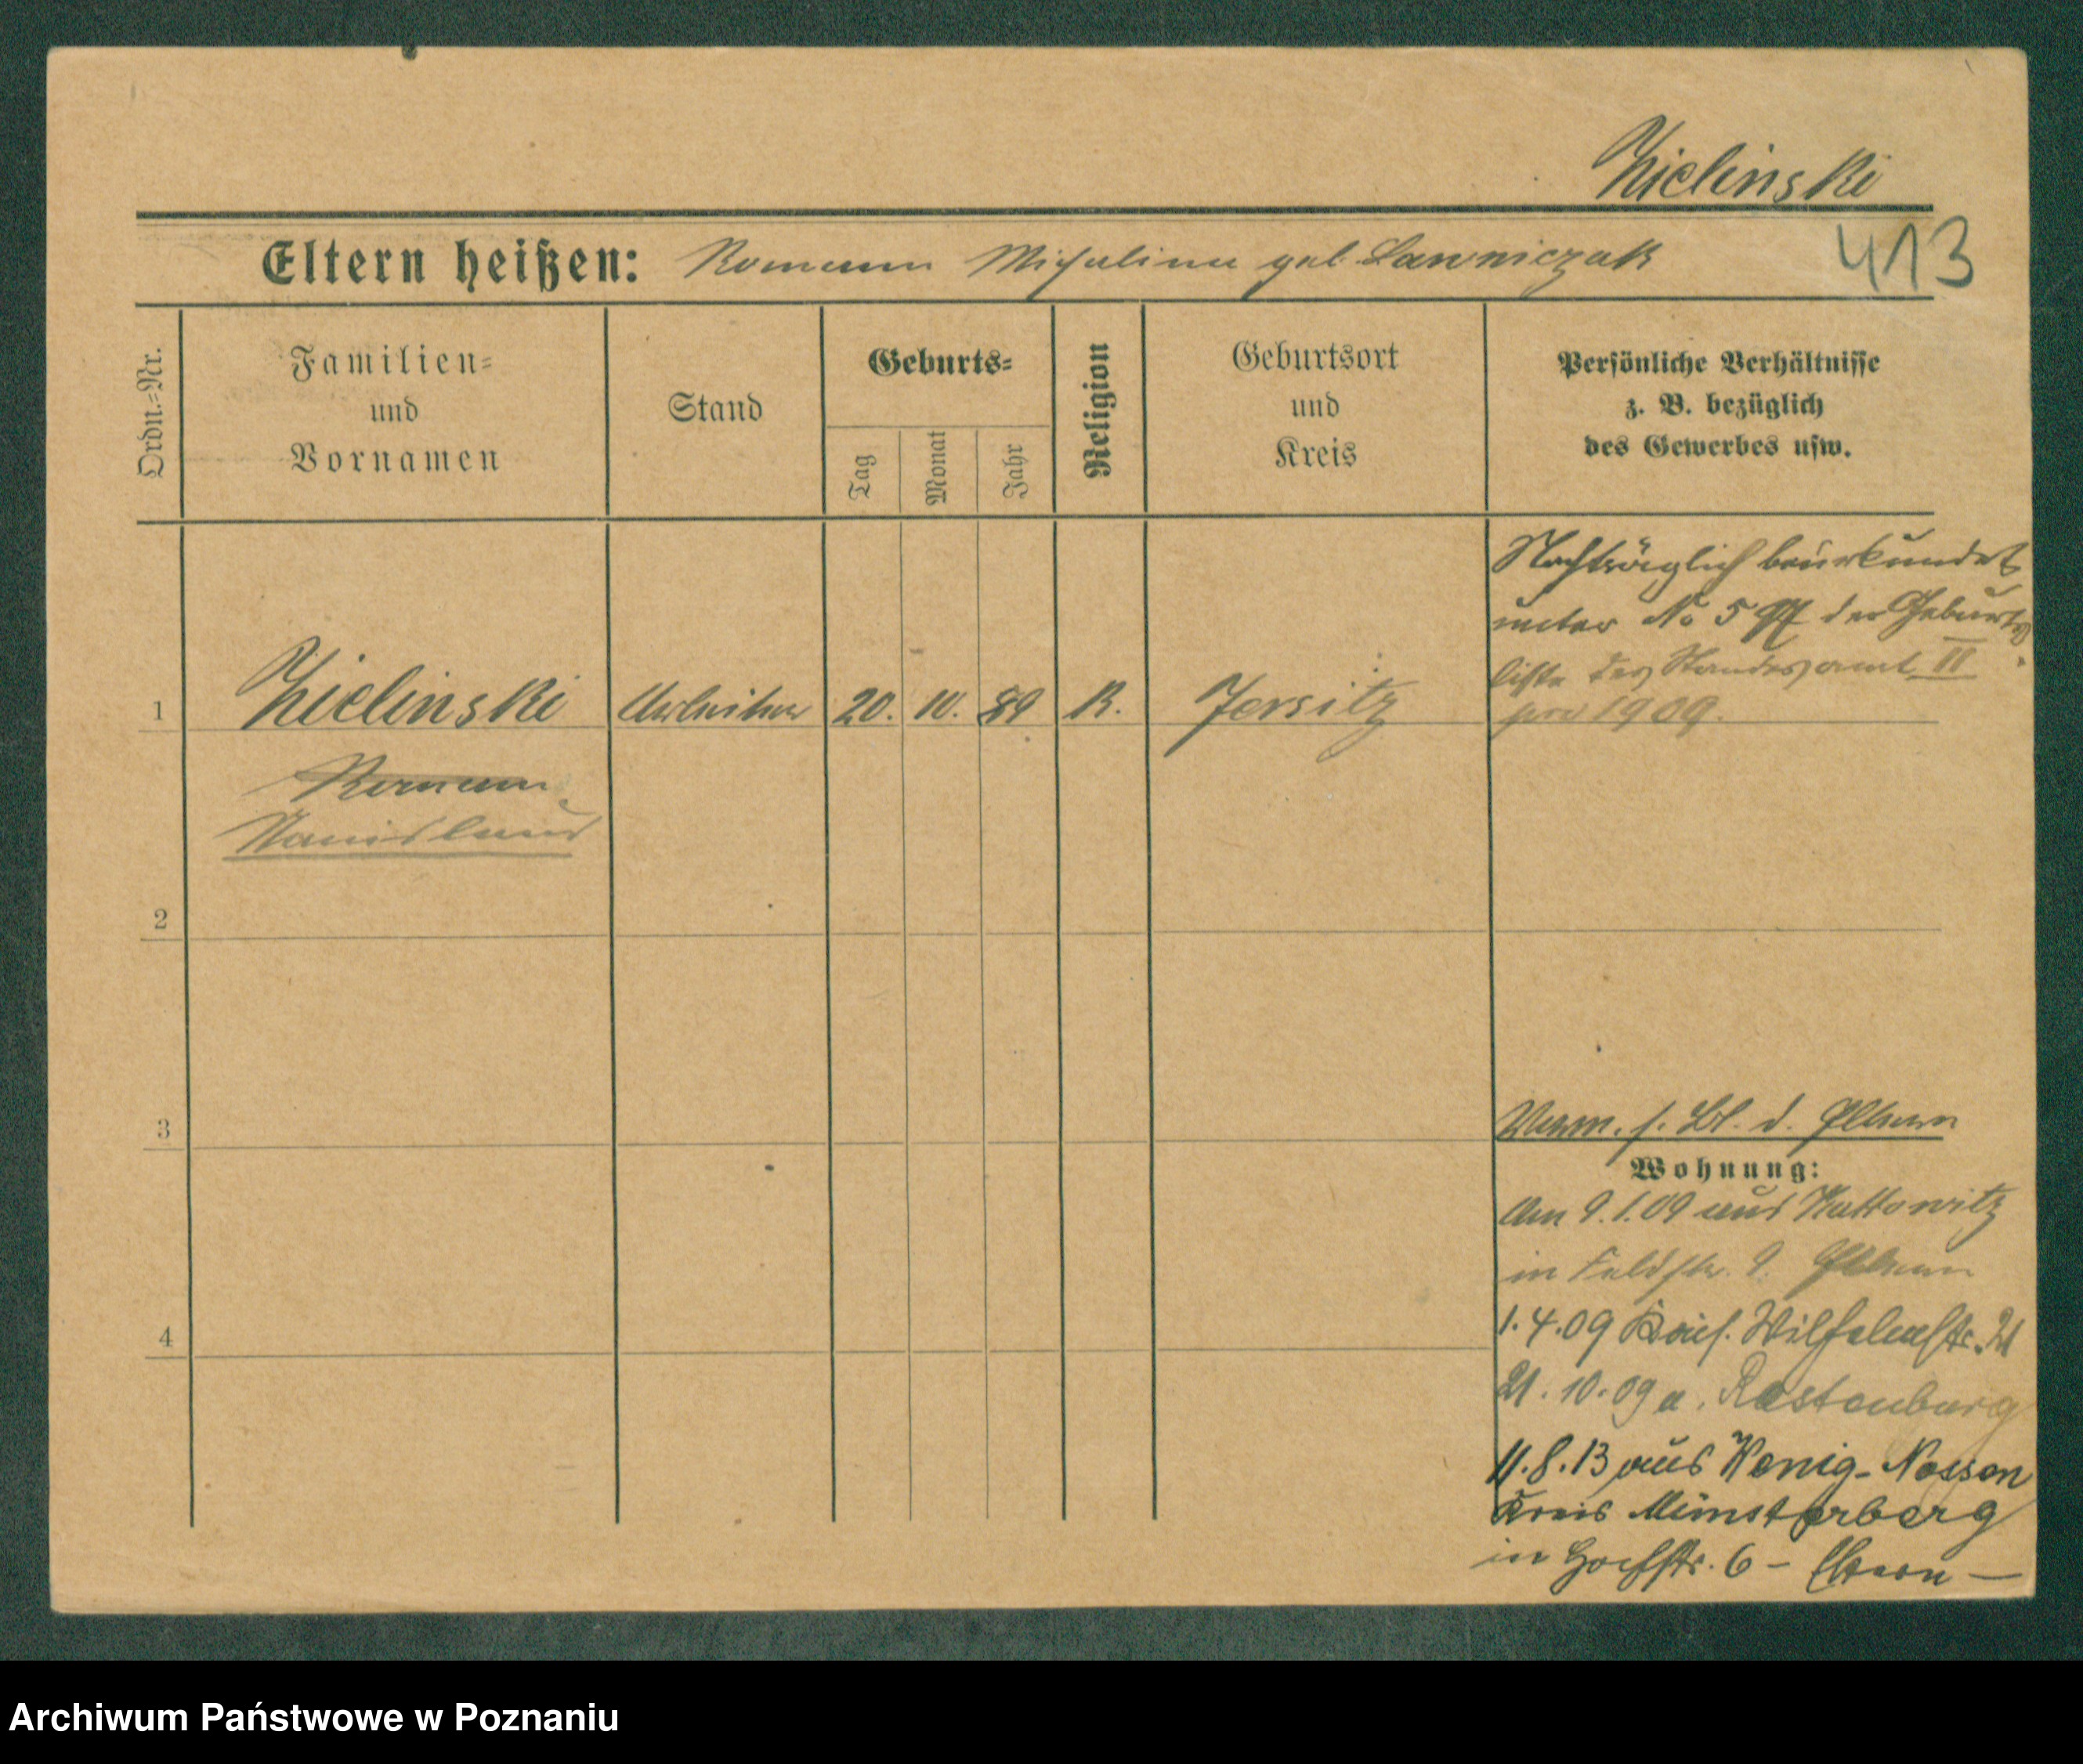 Zielinski
Eltern heißen: Roman Michalina geb. Lawniczak
413
Ordn.=Nr.
Familien=
und
Vornamen
Stand
Geburts=
Tag
Monat
Jahr
Religion
Geburtsort
und
Kreis
Persönliche Verhältnisse
z. B. bezüglich
des Gewerbes usw.
Nachträglich beurkundet
unter No 5 der Geburts
liste des Standesamt II
pro 1909.
1 Zielinski Arbeiter 20. 10. 89 K. Jersitz
Roman
Stanislaus
2
3
Verm. s. Bl. d. Eltern
Wohnung:
Am 9.1.09 aus Kattowitz
in Feldstr. 9. Eltern
4
1.4.09 Wilhelmstr. 21
21.10.09 a. Rastenburg
11.8.13 aus Wenig-Nossen
Kreis Münsterberg
in 6 – Eltern –
Archiwum Państwowe w Poznaniu